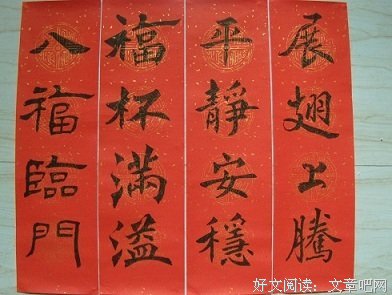 展翅上騰
平靜安穩
福杯滿溢
八福臨門
好文阅读：文章吧网